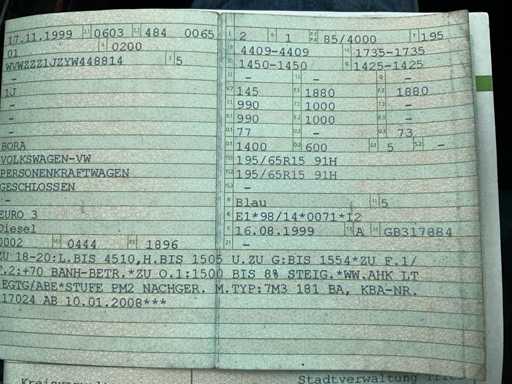 17.11.1999 0603 484 0065
01 0200
WVWZZZ1JZYW448814 5
-
1J
-
-
BORA
VOLKSWAGEN-VW
PERSONENKRAFTWAGEN
GESCHLOSSEN
-
EURO 3
Diesel
0002 0444 1896
2 1 85/4000 195
4409-4409 1735-1735
1450-1450 1425-1425
- - -
145 1880 1880
990 1000 -
990 1000 -
77 - 73
1400 600 5 -
195/65R15 91H
195/65R15 91H
-
Blau 5
E1*98/14*0071*12
16.08.1999 A GB317884
-
ZU 18-20:L.BIS 4510,H.BIS 1505 U.ZU G:BIS 1554*ZU F.1/
F.2:+70 BANH-BETR.*ZU O.1:1500 BIS 8% STEIG.*WW.AHK LT
EGTG/ABE*STUFE PM2 NACHGER. M.TYP:7M3 181 BA, KBA-NR.
17024 AB 10.01.2008***
Stadtverwaltung